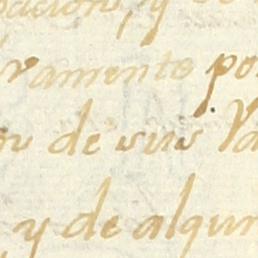 y
ramente po
de sus Va
y de algun